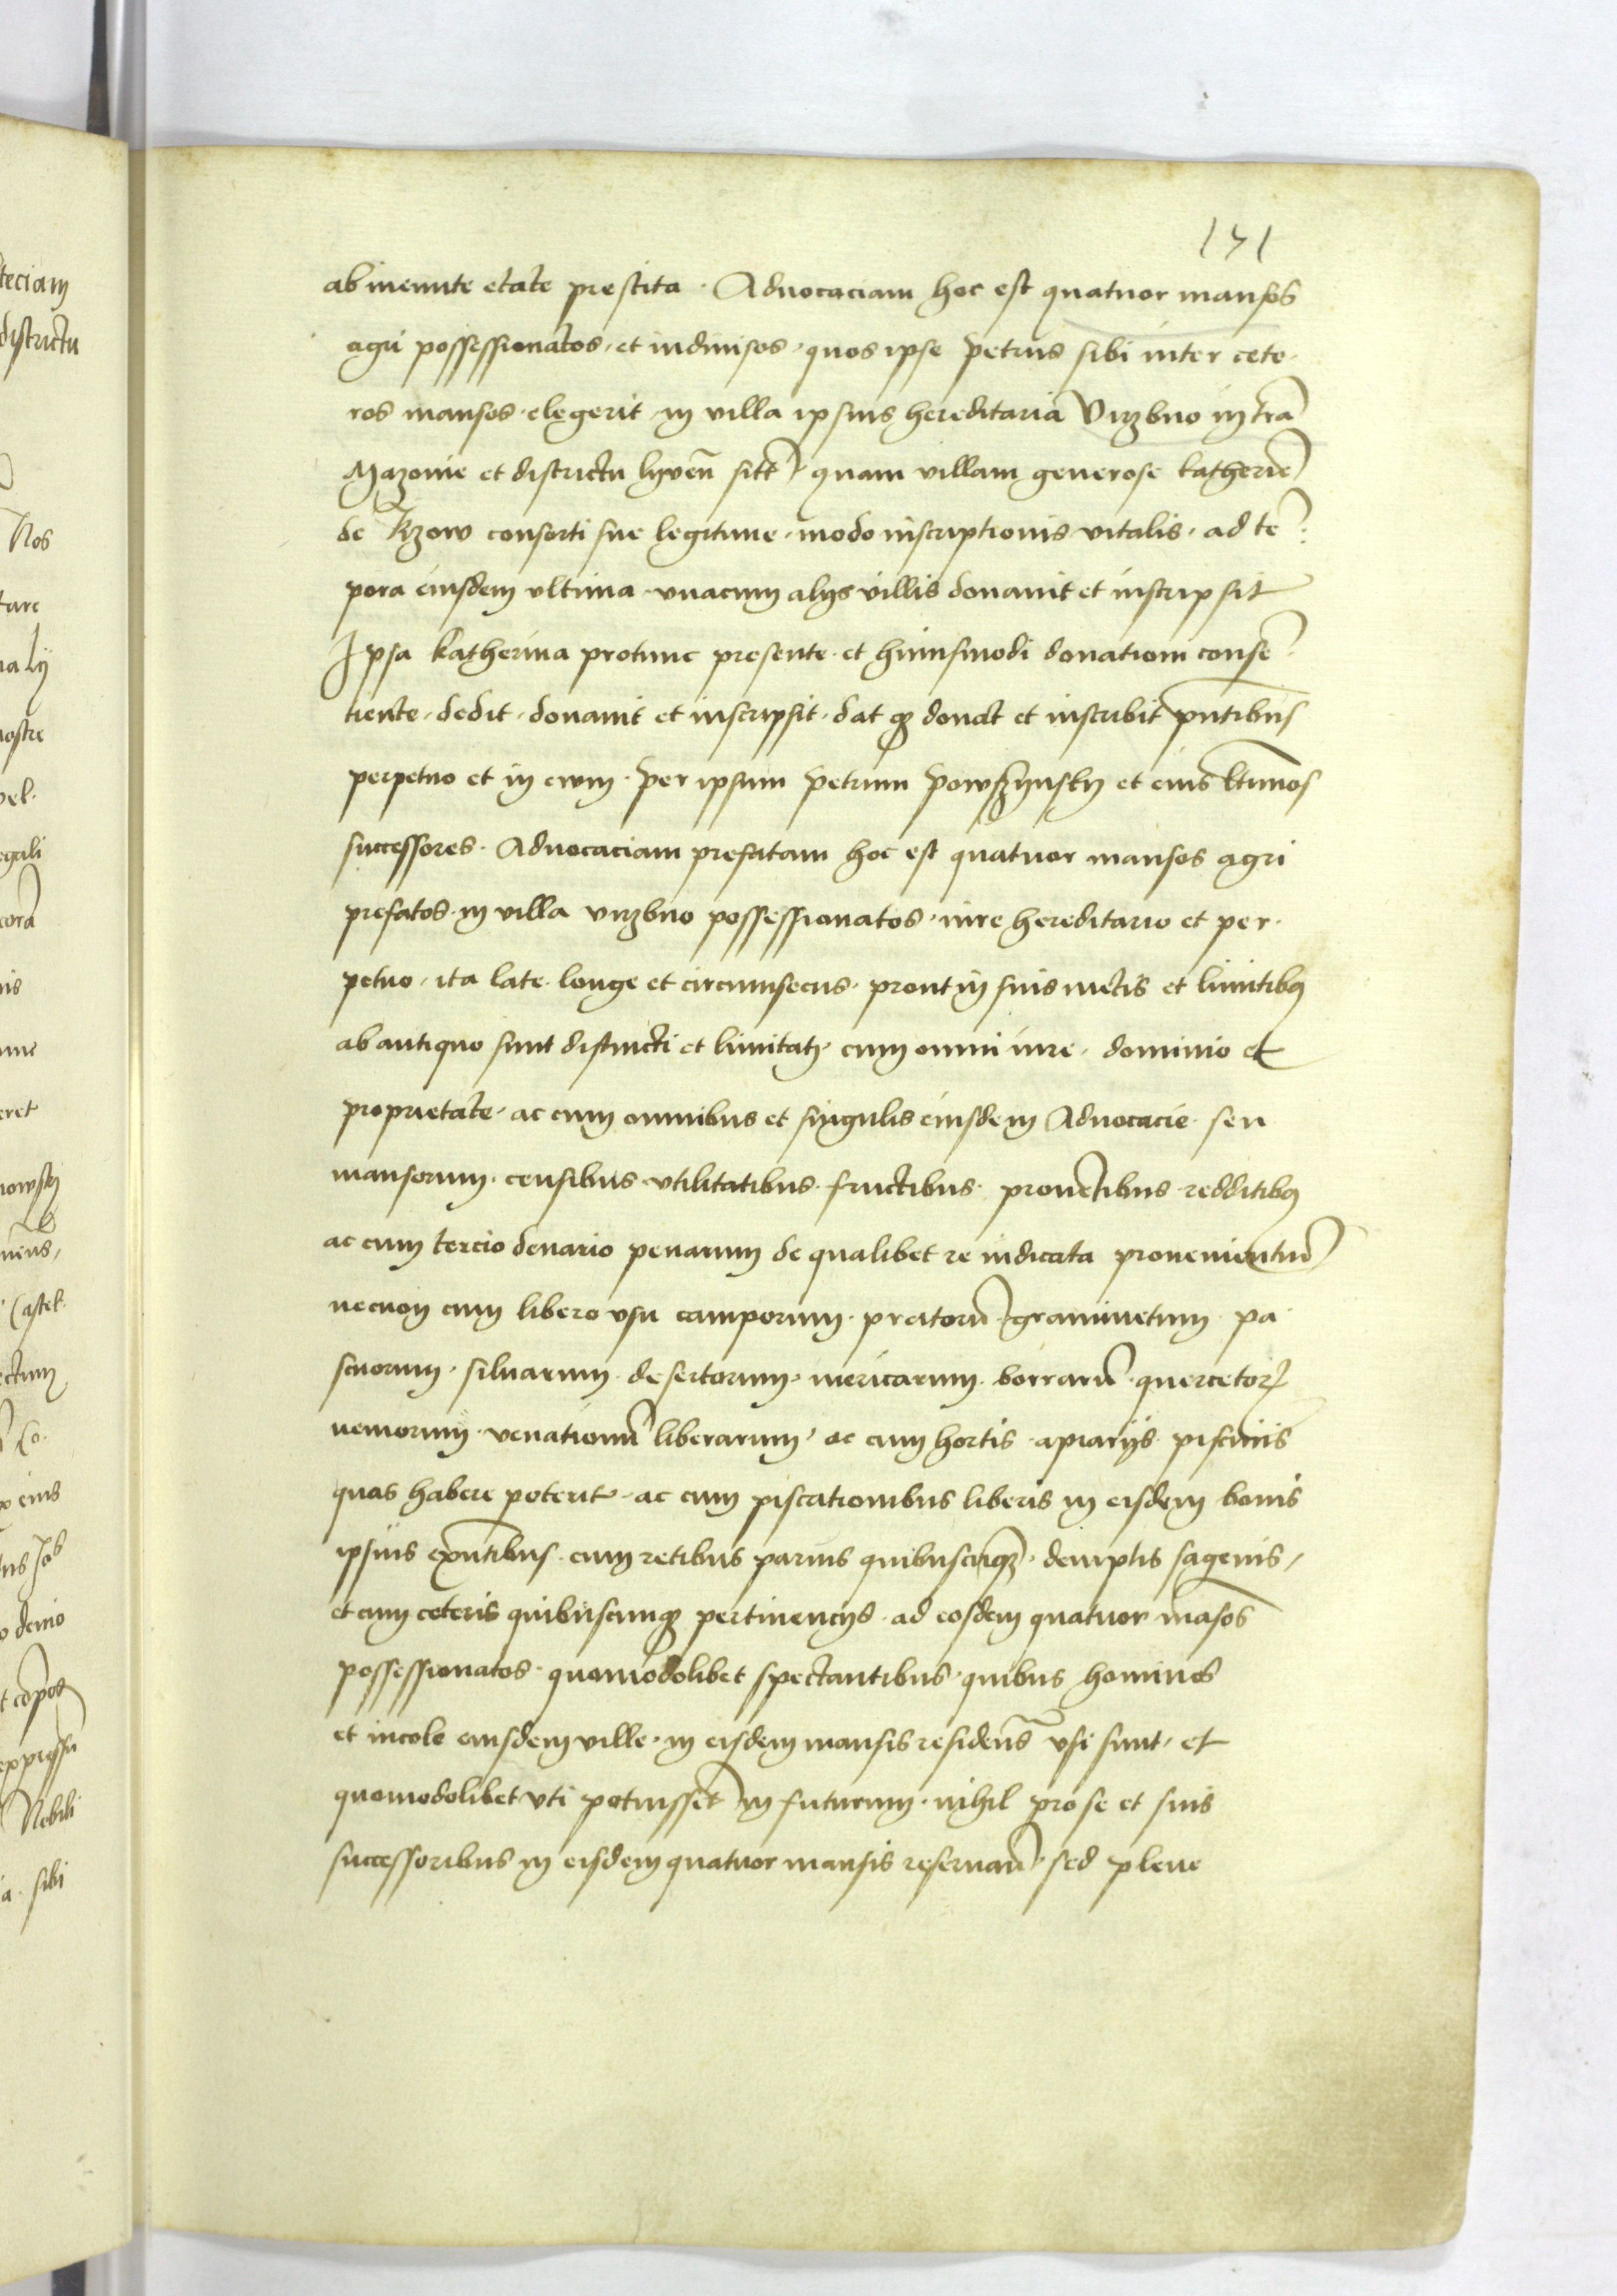 171
ab ineunte etate prestita · Aduocaciam hoc est quatuor mansos
agri possessionatos, et indiuisos, quos ipse Petrus sibi inter cete
ros mansos elegerit in villa ipsius hereditaria Virzbno in tra͂
Mazouie et districtu lyven͂ sitt͂ quam villam generose katherie͂
de Kzow consorti sue legitime, modo inscriptionis vitalis, ad te͂
pora eiusdem vltima vnacum alijs villis donauit et inscripsit
Ipsa Katherina protunc presente et huiusmodi donationi conse͂
tiente, dedit, donauit et inscripsit, dat q donat et inscribit pn͂tibus
perpetuo et in ewm · per ipsum Petrum Powszynsky et eius l͂timos
successores · Aduocaciam prefatam hoc est quatuor mansos agri
prefatos in villa virzbno possessionatos, iure hereditario et per
petuo, ita late longe et circumsecus, prout in suis metis et limitibus
ab antiquo sunt distincti et limitati, cum omni iure, dominio et
proprietate, ac cum omnibus et singulis eiusdem Aduocacie seu
mansorum, censibus vtilitatibus fructibus prouetibus redditibus
ac cum tercio denario penarum de qualibet re iudicata prouenientiu͂
necnon cum libero vsu camporum · pratoru͂ graminetum pa
scuorum, siluarum desertorum, mericarum borraru͂ quercetor
nemorum venationu͂ liberarum, ac cum hortis apiarijs piscinis
quas habere poterit, ac cum piscationibus liberis in eisdem bonis
ipsius exn͂tibus cum retibus paruis quibuscu͂q demptis sagenis,
et cum ceteris quibuscunq pertinencijs ad eosdem quatuor ma͂sos
possessionatos quomodolibet spectantibus, quibus homines
et incole eiusdem ville, in eisdem mansis residen͂s vsi sunt, et
quomodolibet vti potuisse͂t in futurum, nihil pro se et suis
successoribus in eisdem quatuor mansis reseruan͂, sed plene
teciam
districtu
Nos
nostre
egali
cora͂
Castel
eius
Nobili
sibi